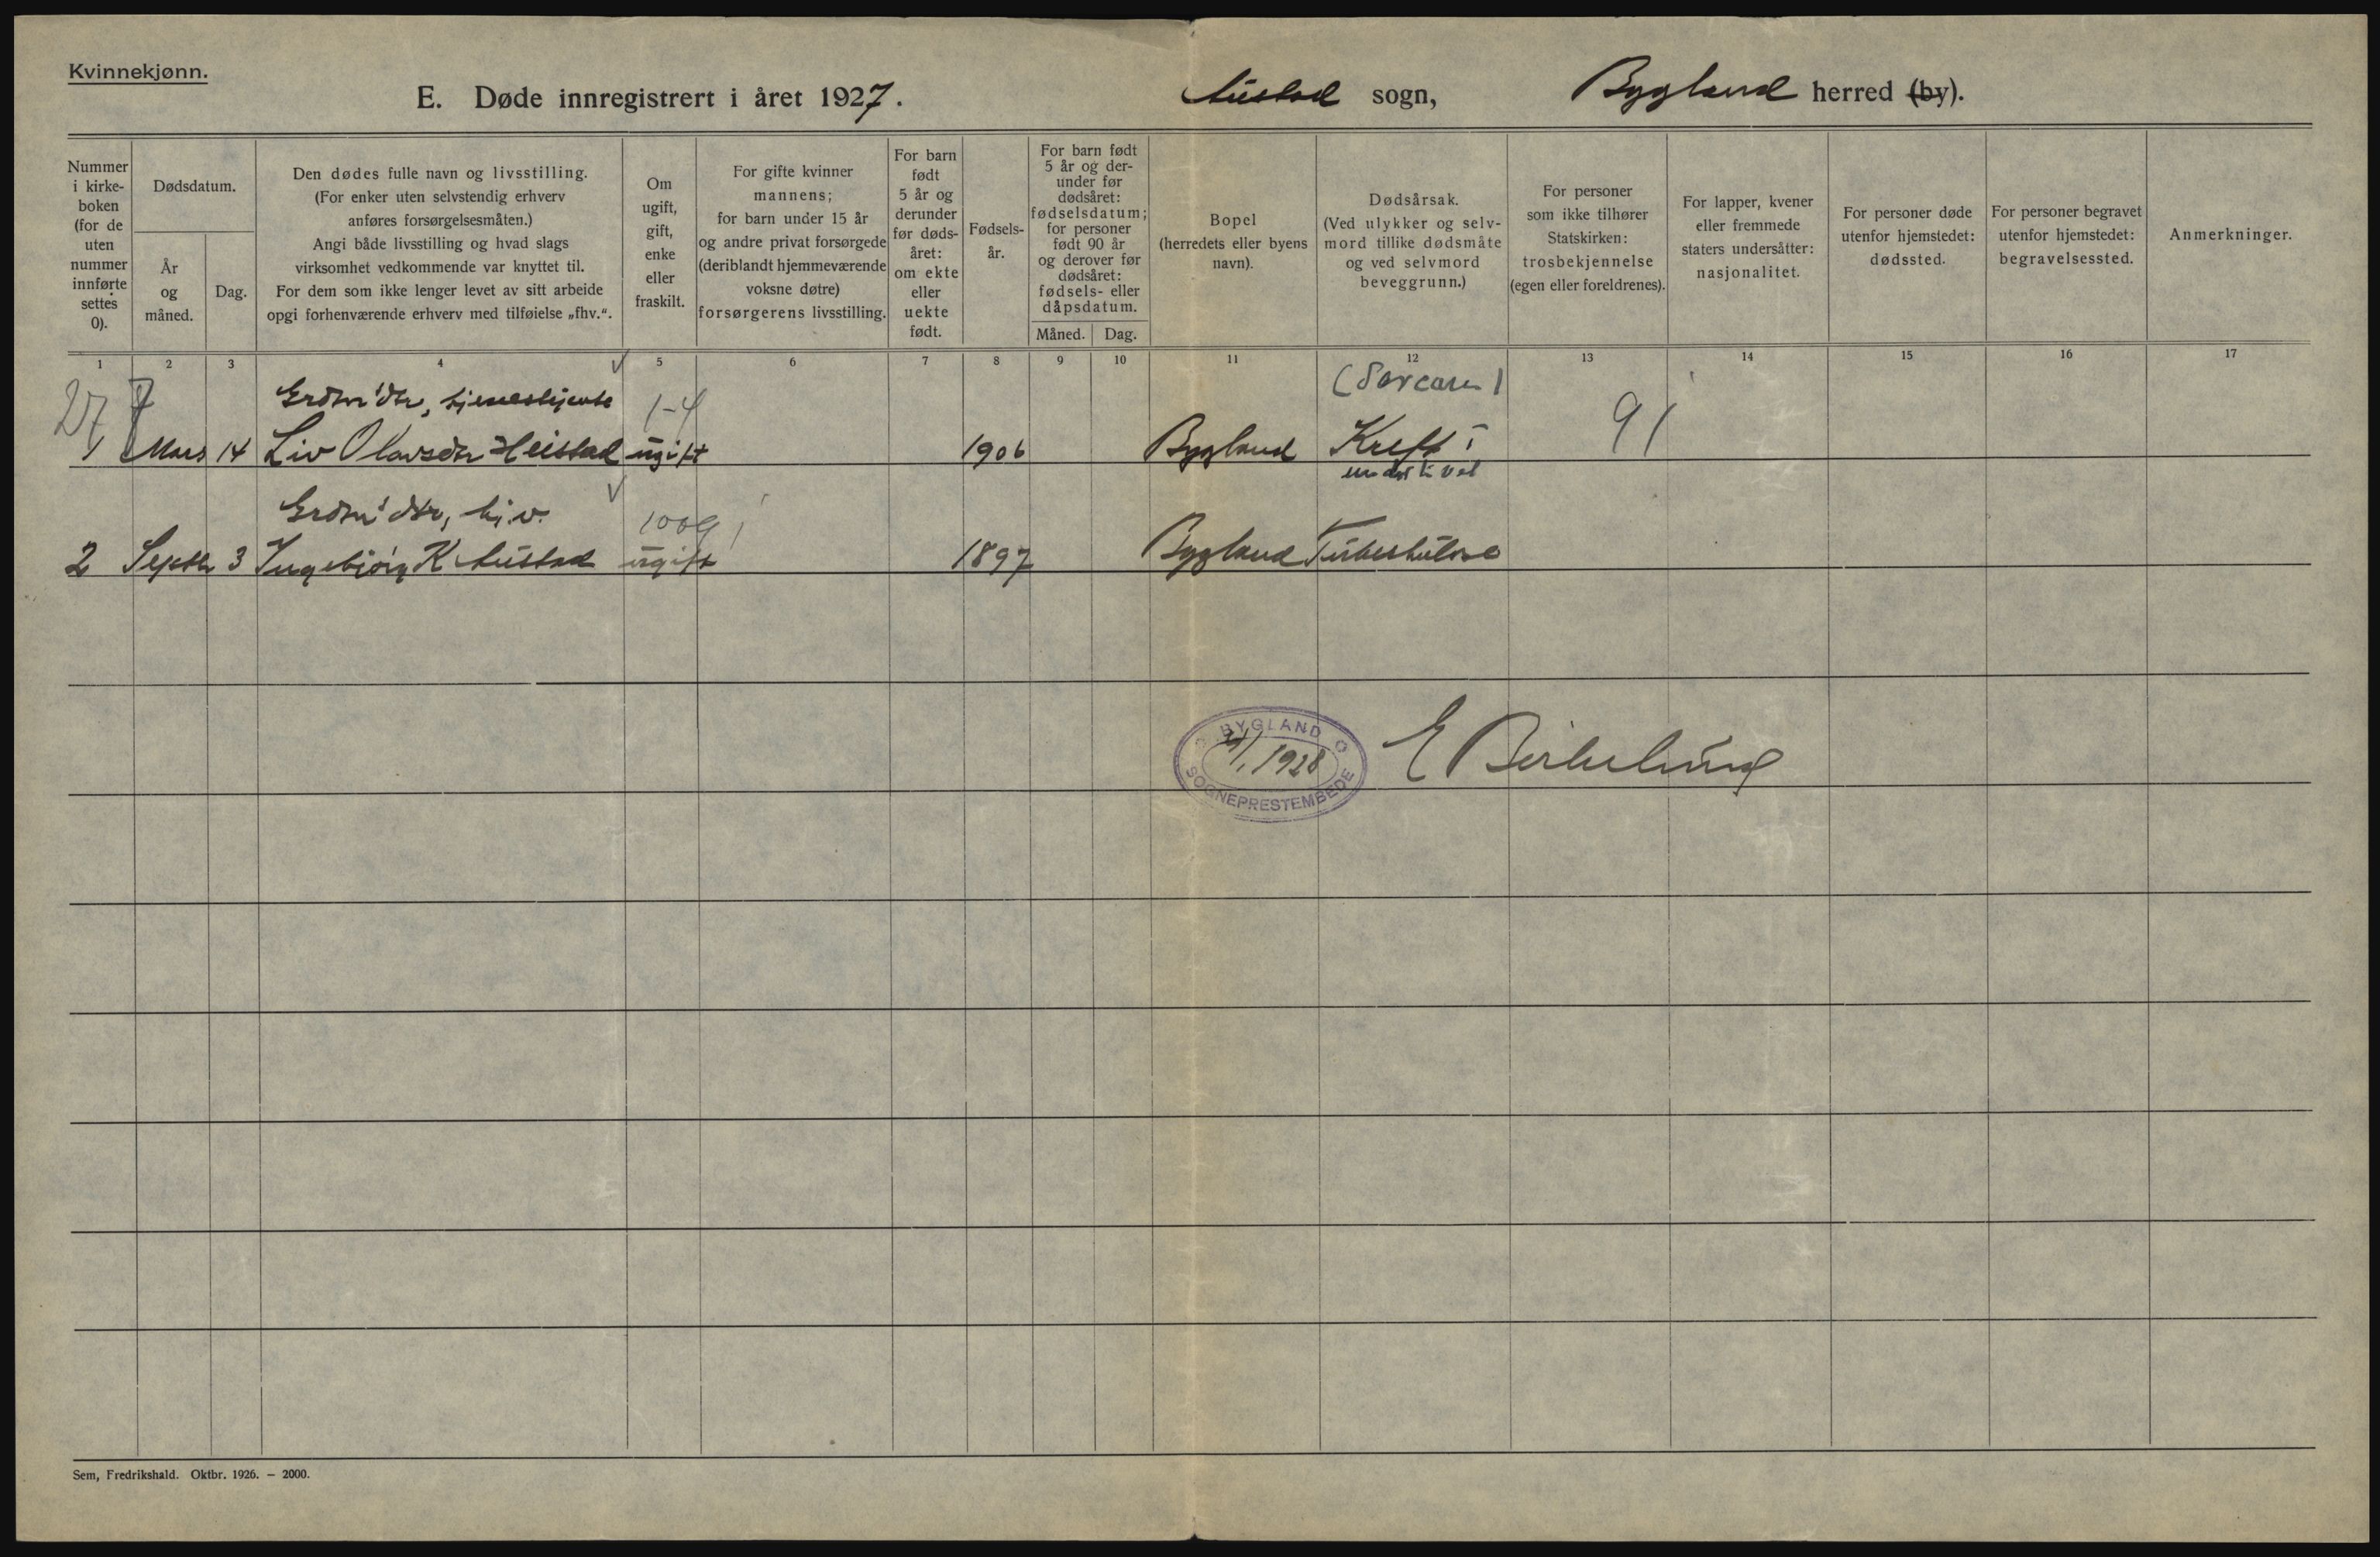 Kvinnekjønn.
E. Døde innregistrert i året 1927.
Austad sogn,
Bygland herred (by).
Nummer
i kirke-
boken
(for de
uten
nummer
innførte
settes
0).
Dødsdatum.
År
og
måned.
Dag.
Den dødes fulle navn og livsstilling.
(For enker uten selvstendig erhverv
anføres forsørgelsesmåten.)
Angi både livsstilling og hvad slags
virksomhet vedkommende var knyttet til.
For dem som ikke lenger levet av sitt arbeide
opgi forhenværende erhverv med tilføielse „fhv.“.
Om
ugift,
gift,
enke
eller
fraskilt.
For gifte kvinner
mannens;
for barn under 15 år
og andre privat forsørgede
(deriblandt hjemmeværende
voksne døtre)
forsørgerens livsstilling.
For barn
født
5 år og
derunder
før døds-
året:
om ekte
eller
uekte
født.
Fødsels-
år.
For barn født
5 år og der-
under før
dødsåret:
fødselsdatum;
for personer
født 90 år
og derover før
dødsåret:
fødsels- eller
dåpsdatum.
Måned. Dag.
Bopel
(herredets eller byens
navn).
Dødsårsak.
(Ved ulykker og selv-
mord tillike dødsmåte
og ved selvmord
beveggrunn.)
For personer
som ikke tilhører
Statskirken:
trosbekjennelse
(egen eller foreldrenes).
For lapper, kvener
eller fremmede
staters undersåtter:
nasjonalitet.
For personer døde
utenfor hjemstedet:
dødssted.
For personer begravet
utenfor hjemstedet:
begravelsessted.
Anmerkninger.
1 2 3 4 5 6 7 8 9 10 11 12 13 14 15 16 17
27 7 Grdbr dtr, tjenestjente 1-4 91
1 Mars 14 Liv Olavsdtr Heistad ugift 1906 Bygland Kreft i
underlivet
Grdbr dtr, hj.v. 1009
2 Septbr 3 Ingebjørg K Austad ugift 1897 Bygland Tuberkulose
BYGLAND
4/1 1928
SOGNEPRESTEMBEDE
E Birkelund
Sem, Fredrikshald. Oktbr. 1926. — 2000.